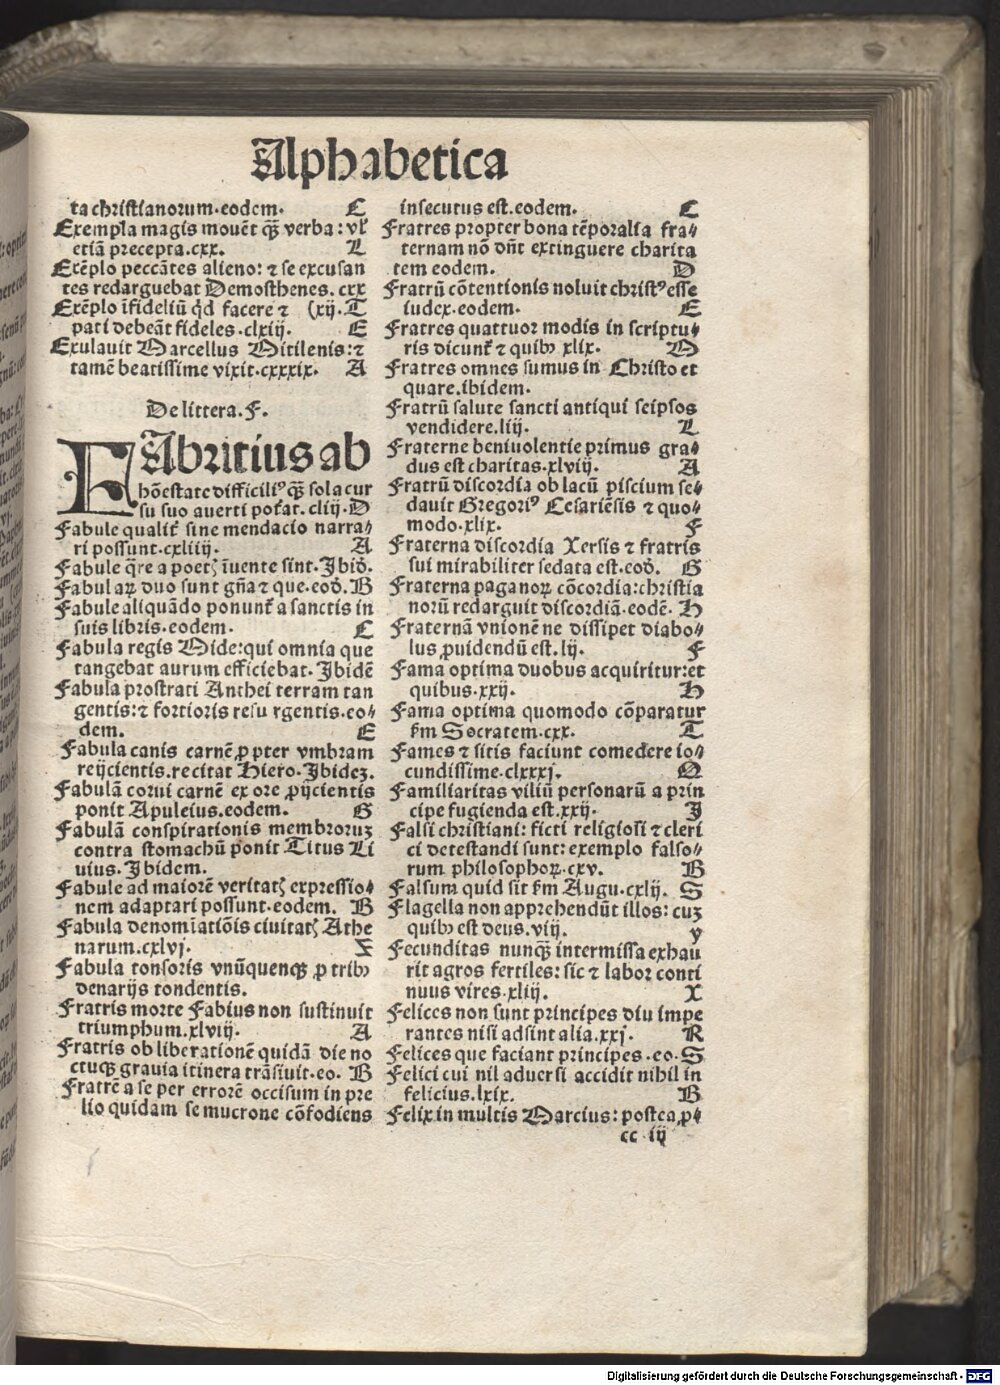 Alphabetica
ta christianorum.eodem. C
Exempla magis mouẽt qȝ verba: vľ
etiã precepta.cxx. L
Exẽplo peccãtes alieno: ⁊ se excusan
tes redarguebat Demosthenes. cxx
Exẽplo ĩfideliũ qd facere ⁊ (xij. T
pati debeãt fideles.clxiij. E
Exulauit Marcellus Mitilenis:⁊
tamẽ beatissime vixit.cxxxix. A
De littera. F.
FAbritius ab
hõestate difficiliꝰ qȝ sola cur
su suo auerti potať. cliij. D
Fabule qualiť sine mendacio narra⸗
ri possunt.cxliiij. A
Fabule q̃re a poetꝭ ĩuente sint. Ibid.
Fabulaꝝ duo sunt gña ⁊ que.eod. B
Fabule aliquãdo ponunť a sanctis in
suis libris.eodem. C
Fabula regis Mide:qui omnia que
tangebat aurum efficiebat. Ibidẽ
Fabula prostrati Anthei terram tan
gentis:⁊ fortioris resu rgentis.eo⸗
dem. E
Fabula canis carnẽ ꝓpter vmbram
reijcientis.recitat Hiero. Ibideȝ.
Fabulã corui carnẽ ex ore ꝓijcientis
ponit Apuleius.eodem. G
Fabulã conspirationis membroruȝ
contra stomachũ ponit Titus Li
uius. Ibidem.
Fabule ad maiorẽ veritatꝭ expressio⸗
nem adaptari possunt.eodem. B
Fabula denomĩatiõis ciuitatꝭ Athe
narum.cxlvj.
Fabula tonsoris vnũquenqȝ ꝓ tribȝ
denarijs tondentis.
Fratris morte Fabius non sustinuit
triumphum.xlviij. A
Fratris ob liberationẽ quidã die no
ctuqȝ grauia itinera trãsiuit.eo. B
Fratrẽ a se per errorẽ occisum in pre
lio quidam se mucrone cõfodiens
insecutus est.eodem. C
Fratres propter bona tẽporalia fra⸗
ternam nõ dñt extinguere charita
tem eodem. D
Fratrũ cõtentionis noluit christꝰ esse
iudex.eodem. E
Fratres quattuor modis in scriptu⸗
ris dicunť ⁊ quibȝ xlix. M
Fratres omnes sumus in Christo et
quare.ibidem.
Fratrũ salute sancti antiqui seipsos
vendidere.liij. L
Fraterne beniuolentie primus gra⸗
dus est charitas.xlviij. A
Fratrũ discordia ob lacũ piscium se⸗
dauit Gregoriꝰ Cesariẽsis ⁊ quo⸗
modo.xlix. F
Fraterna discordia Xersis ⁊ fratris
sui mirabiliter sedata est.eod. G
Fraterna paganoꝝ cõcordia:christia
norũ redarguit discordiã.eodẽ. H
Fraternã vnionẽ ne dissipet diabo⸗
lus ꝓuidendũ est.lij. F
Fama optima duobus acquiritur:et
quibus.xxij. H
Fama optima quomodo cõparatur
fm Socratem.cxx. T
Fames ⁊ sitis faciunt comedere io⸗
cundissime.clxxxj. Q
Familiaritas viliũ personarũ a prin
cipe fugienda est.xxij. I
Falsi christiani: ficti religiosi ⁊ cleri
ci detestandi sunt: exemplo falso⸗
rum philosophoꝝ.cxv. B
Falsum quid sit fm Augu.cxlij. S
Flagella non apprehendũt illos: cuȝ
quibȝ est deus.viij. y
Fecunditas nunqȝ intermissa exhau
rit agros fertiles: sic ⁊ labor conti
nuus vires.xliij. X
Felices non sunt principes diu impe
rantes nisi adsint alia.xxj. R
Felices que faciant principes .eo. S
Felici cui nil aduersi accidit nihil in
felicius.lxix. B
Felix in multis Marcius: postea ꝓ⸗
cc iij
Digitalisierung gefördert durch die Deutsche Forschungsgemeinschaft - DFG